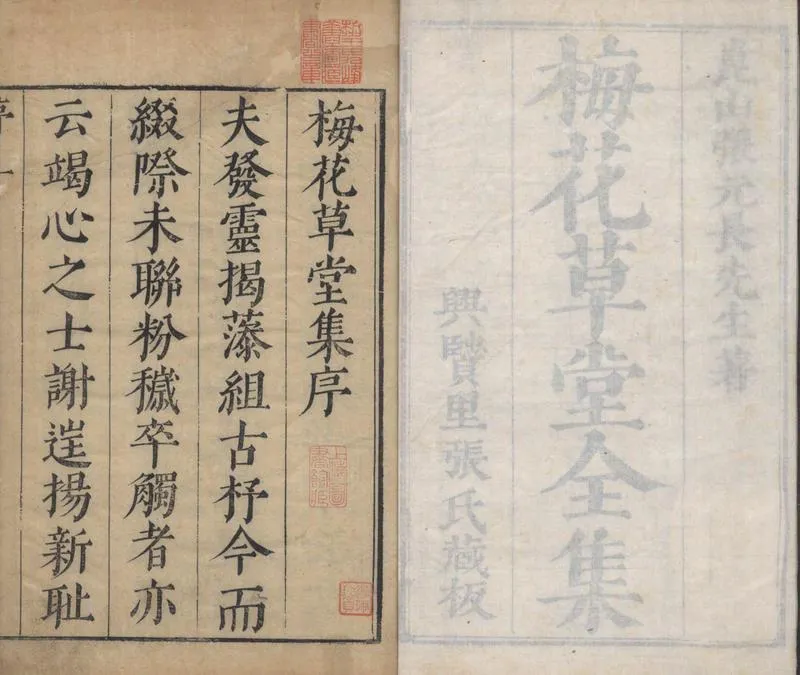 崑山張元長先生著
梅花草堂全集
興賢里張氏藏板
梅花草堂集序
上海圖
書館藏
夫發靈揭藻組古杼今而
綴際未聯粉穢卒觸者亦
云竭心之士謝揚新恥
序一